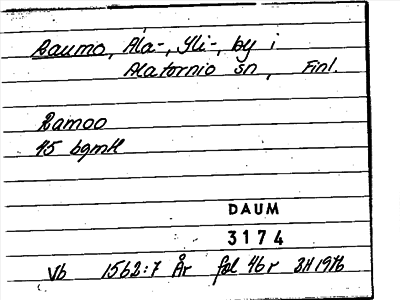 Raumo, Ala-, Yli-, by i
Alatornio sn, Finl.
Ramoo
45 bgmH
DAUM
3174
Vb 1562:7 År fol 46r 1976